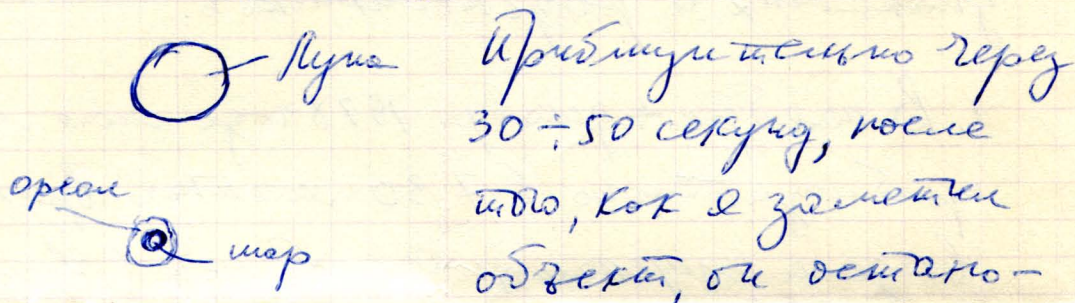 Луна
ореол
шар
Приблизительно через
30 ÷ 50 секунд, после
того, как я заметил
объект, он остано-